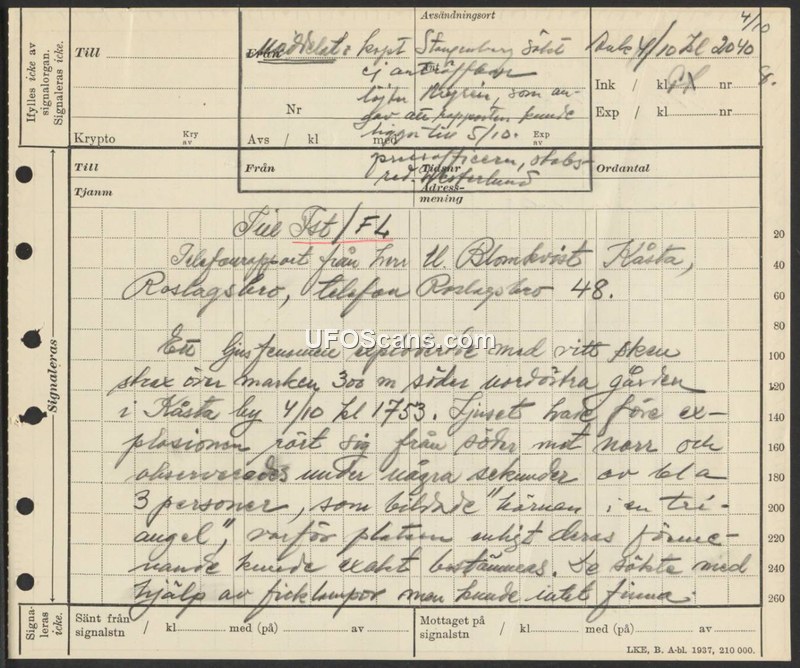 Ifylles icke av
signalorgan.
Signaleras icke.
Till
Krypto
Kry
av
Avsändningsort
4/10
Från
Meddelat: kapt Stangenberg sökt
ej anträffbar
löjtn Nyrén, som an-
gav att rapporten kunde
ligga till 5/10.
pressofficern, stabs-
red. Westerlund
Nr
Avs / kl med
Exp
av
4/10 kl 2040
Ink / kl nr
Exp / kl nr
Till
Från
Tidsnr
Ordantal
Tjanm
Adress-
mening
Till Fst/FL
Telefonrapport från herr U. Blomkvist Kåsta,
20
40
Roslagsbro, telefon Roslagsbro 48.
60
80
UFOScans.com
Ett ljusfenomen exploderade med vitt sken
100
strax över marken 300 m söder nordöstra gården
120
i Kåsta by 4/10 kl 1753. Ljuset hade före ex-
140
plosionen rört sig från söder mot norr och
160
observerades under några sekunder av bl a
180
3 personer, som bildade "hörnen i en tri-
200
angel", varför platsen enligt deras förme-
220
nande kunde exakt bestämmas. De sökte med
240
hjälp av ficklampor men kunde intet finna.
260
Signaleras
Signa-
leras
icke.
Sänt från
signalstn / kl med (på) av
Mottaget på
signalstn / kl med (på) av
LKE, B. A-bl. 1937, 210 000.